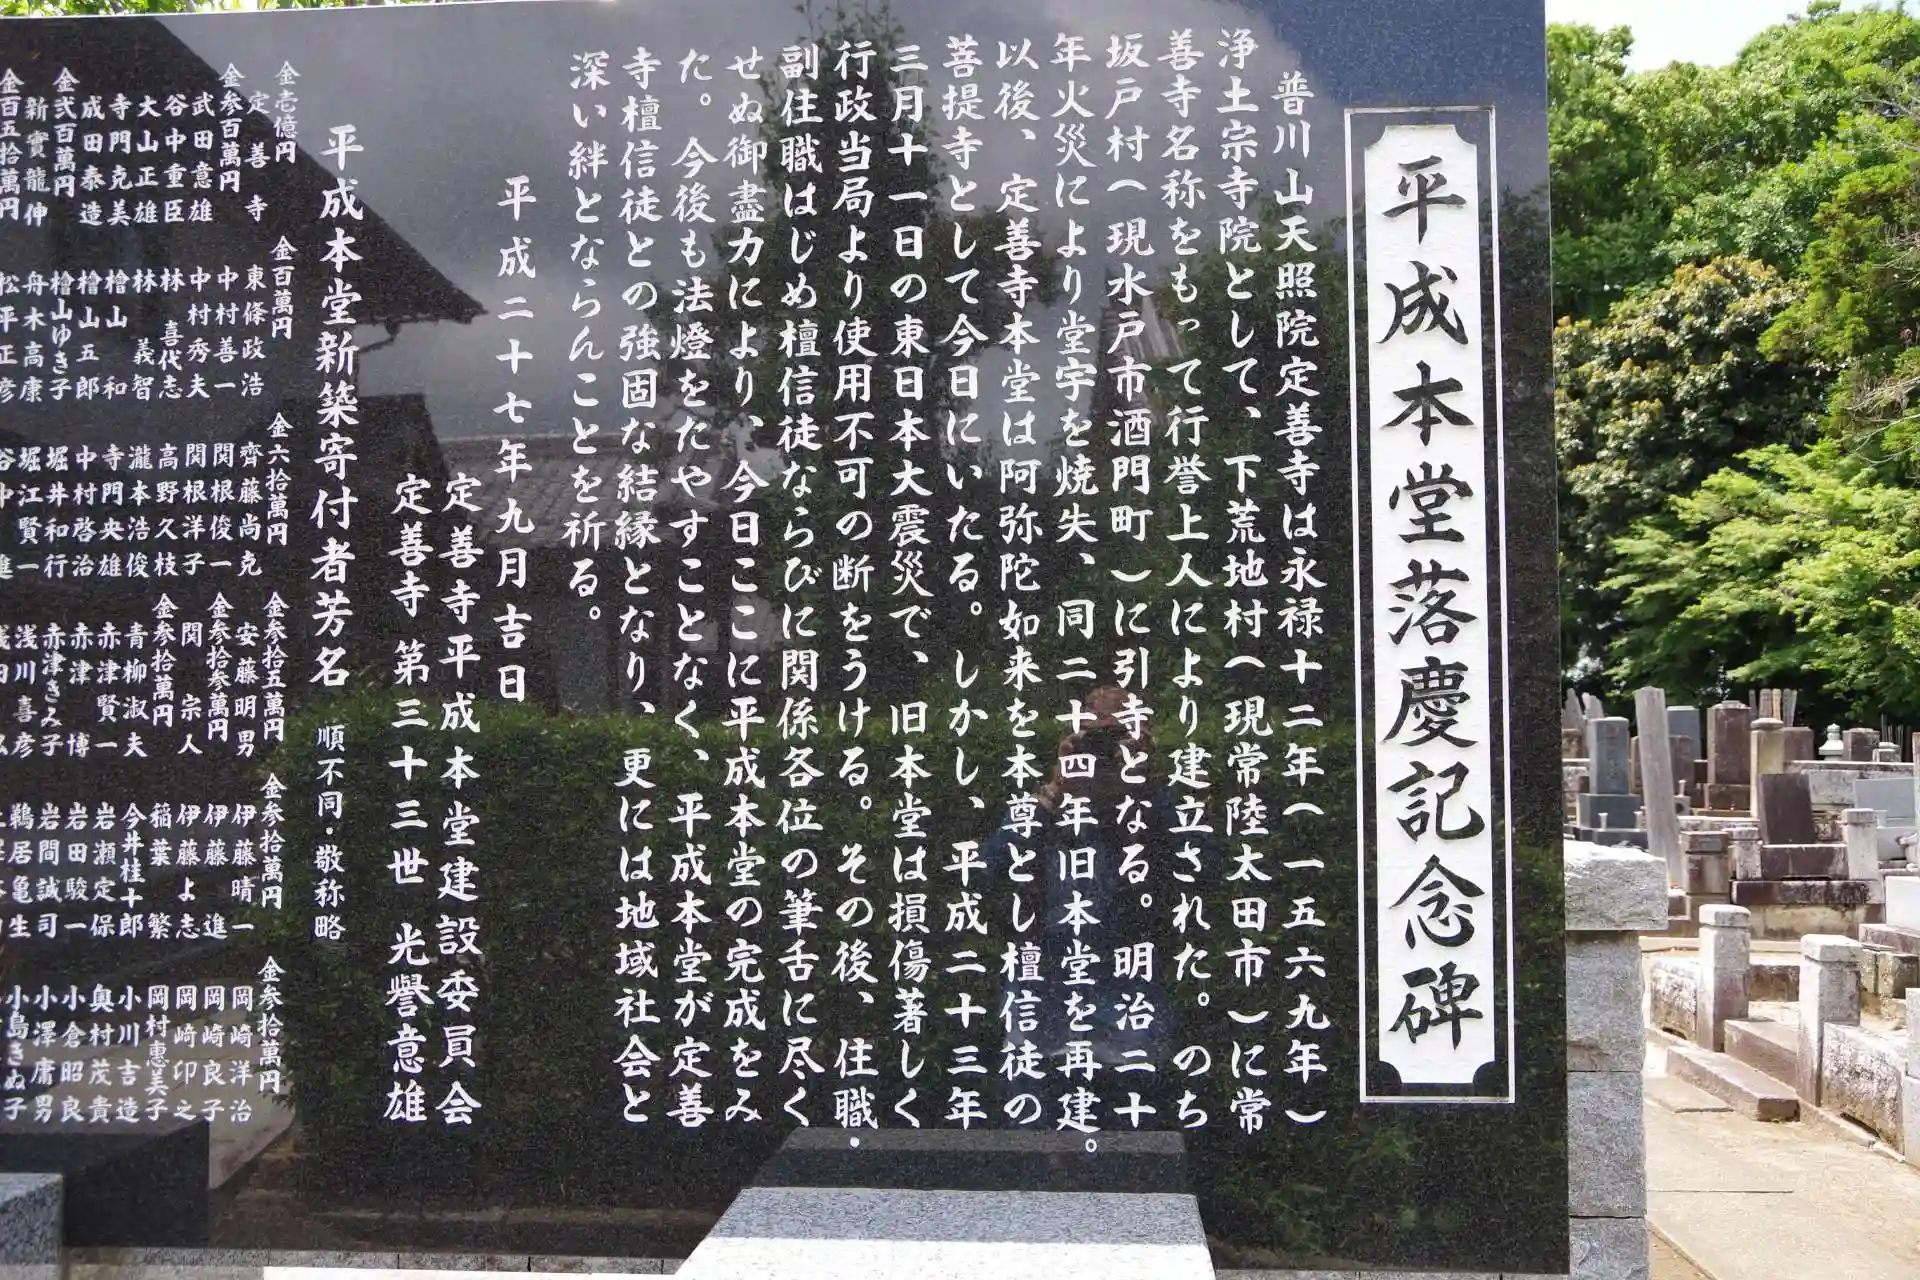 平成本堂落慶記念碑
普川山天照院定善寺は永禄十二年(一五六九年)
浄土宗寺院として、下荒地村(現常陸太田市)に常
善寺名称をもって行誉上人により建立された。のち
坂戸村(現水戸市酒門町)に引寺となる。明治二十
年火災により堂宇を焼失、同二十四年旧本堂を再建。
以後、定善寺本堂は阿弥陀如来を本尊とし檀信徒の
菩提寺として今日にいたる。しかし、平成二十三年
三月十一日の東日本大震災で、旧本堂は損傷著しく
行政当局より使用不可の断をうける。その後、住職・
副住職はじめ檀信徒ならびに関係各位の筆舌に尽く
せぬ御盡力により、今日ここに平成本堂の完成をみ
た。今後も法燈をたやすことなく、平成本堂が定善
寺檀信徒との強固な結縁となり、更には地域社会と
深い絆とならんことを祈る。
平成二十七年九月吉日
定善寺平成本堂建設委員会
定善寺 第三十三世 光譽意雄
平成本堂新築寄付者芳名 順不同・敬称略
金壱億円
定善寺
金参百萬円
武田意雄
谷中重臣
大山正雄
寺門克美
成田泰造
金弐百萬円
新實龍伸
金百五拾萬円
金百萬円
東條政浩
中村善一
中村秀夫
林 喜代志
林 義智
檜山 和
檜山五郎
檜山ゆき子
舟木高康
松平正彦
金六拾萬円
齊藤尚克
関根俊一
関根洋子
高野久枝
瀧本浩俊
寺門央雄
中村啓治
堀井和行
堀江賢一
金参拾五萬円
安藤明男
金参拾参萬円
関 宗人
金参拾萬円
青柳淑夫
赤津賢一
赤津 博
赤津きみ子
浅川喜彦
金参拾萬円
伊藤晴一
伊藤 進
伊藤よ志
稲葉 繁
今井桂十郎
岩瀬定保
岩田駿一
岩間誠司
鵜居亀生
金参拾萬円
岡崎洋治
岡崎良子
岡崎卯之
岡村惠美子
小川吉造
奥村茂貴
小倉昭良
小澤庸男
小島きぬ子